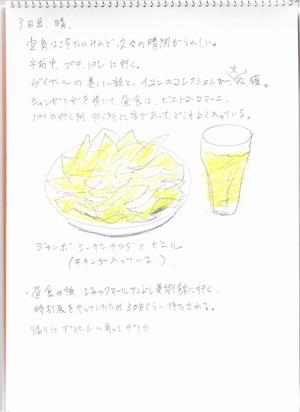 3日目、晴。
空気は冷たいけれど、久々の晴間がうれしい。
午前中、プチ・パレに行く。
ヴイヤールの美しい絵と、イコンのコレクションが大収穫。
シャンゼリゼを歩いて、昼食は、ビストロ・ロマーニ、
パリの行く所 行く所に店があって、どこもよく入っている。
ジャンボシーザーサラダと ビール
(チキンが入っている。)
・昼食の後、ジャックマールアンドレ美術館に行く。
時計展をやっていたため 30分くらい待たされる。
帰りに に寄って デリカ